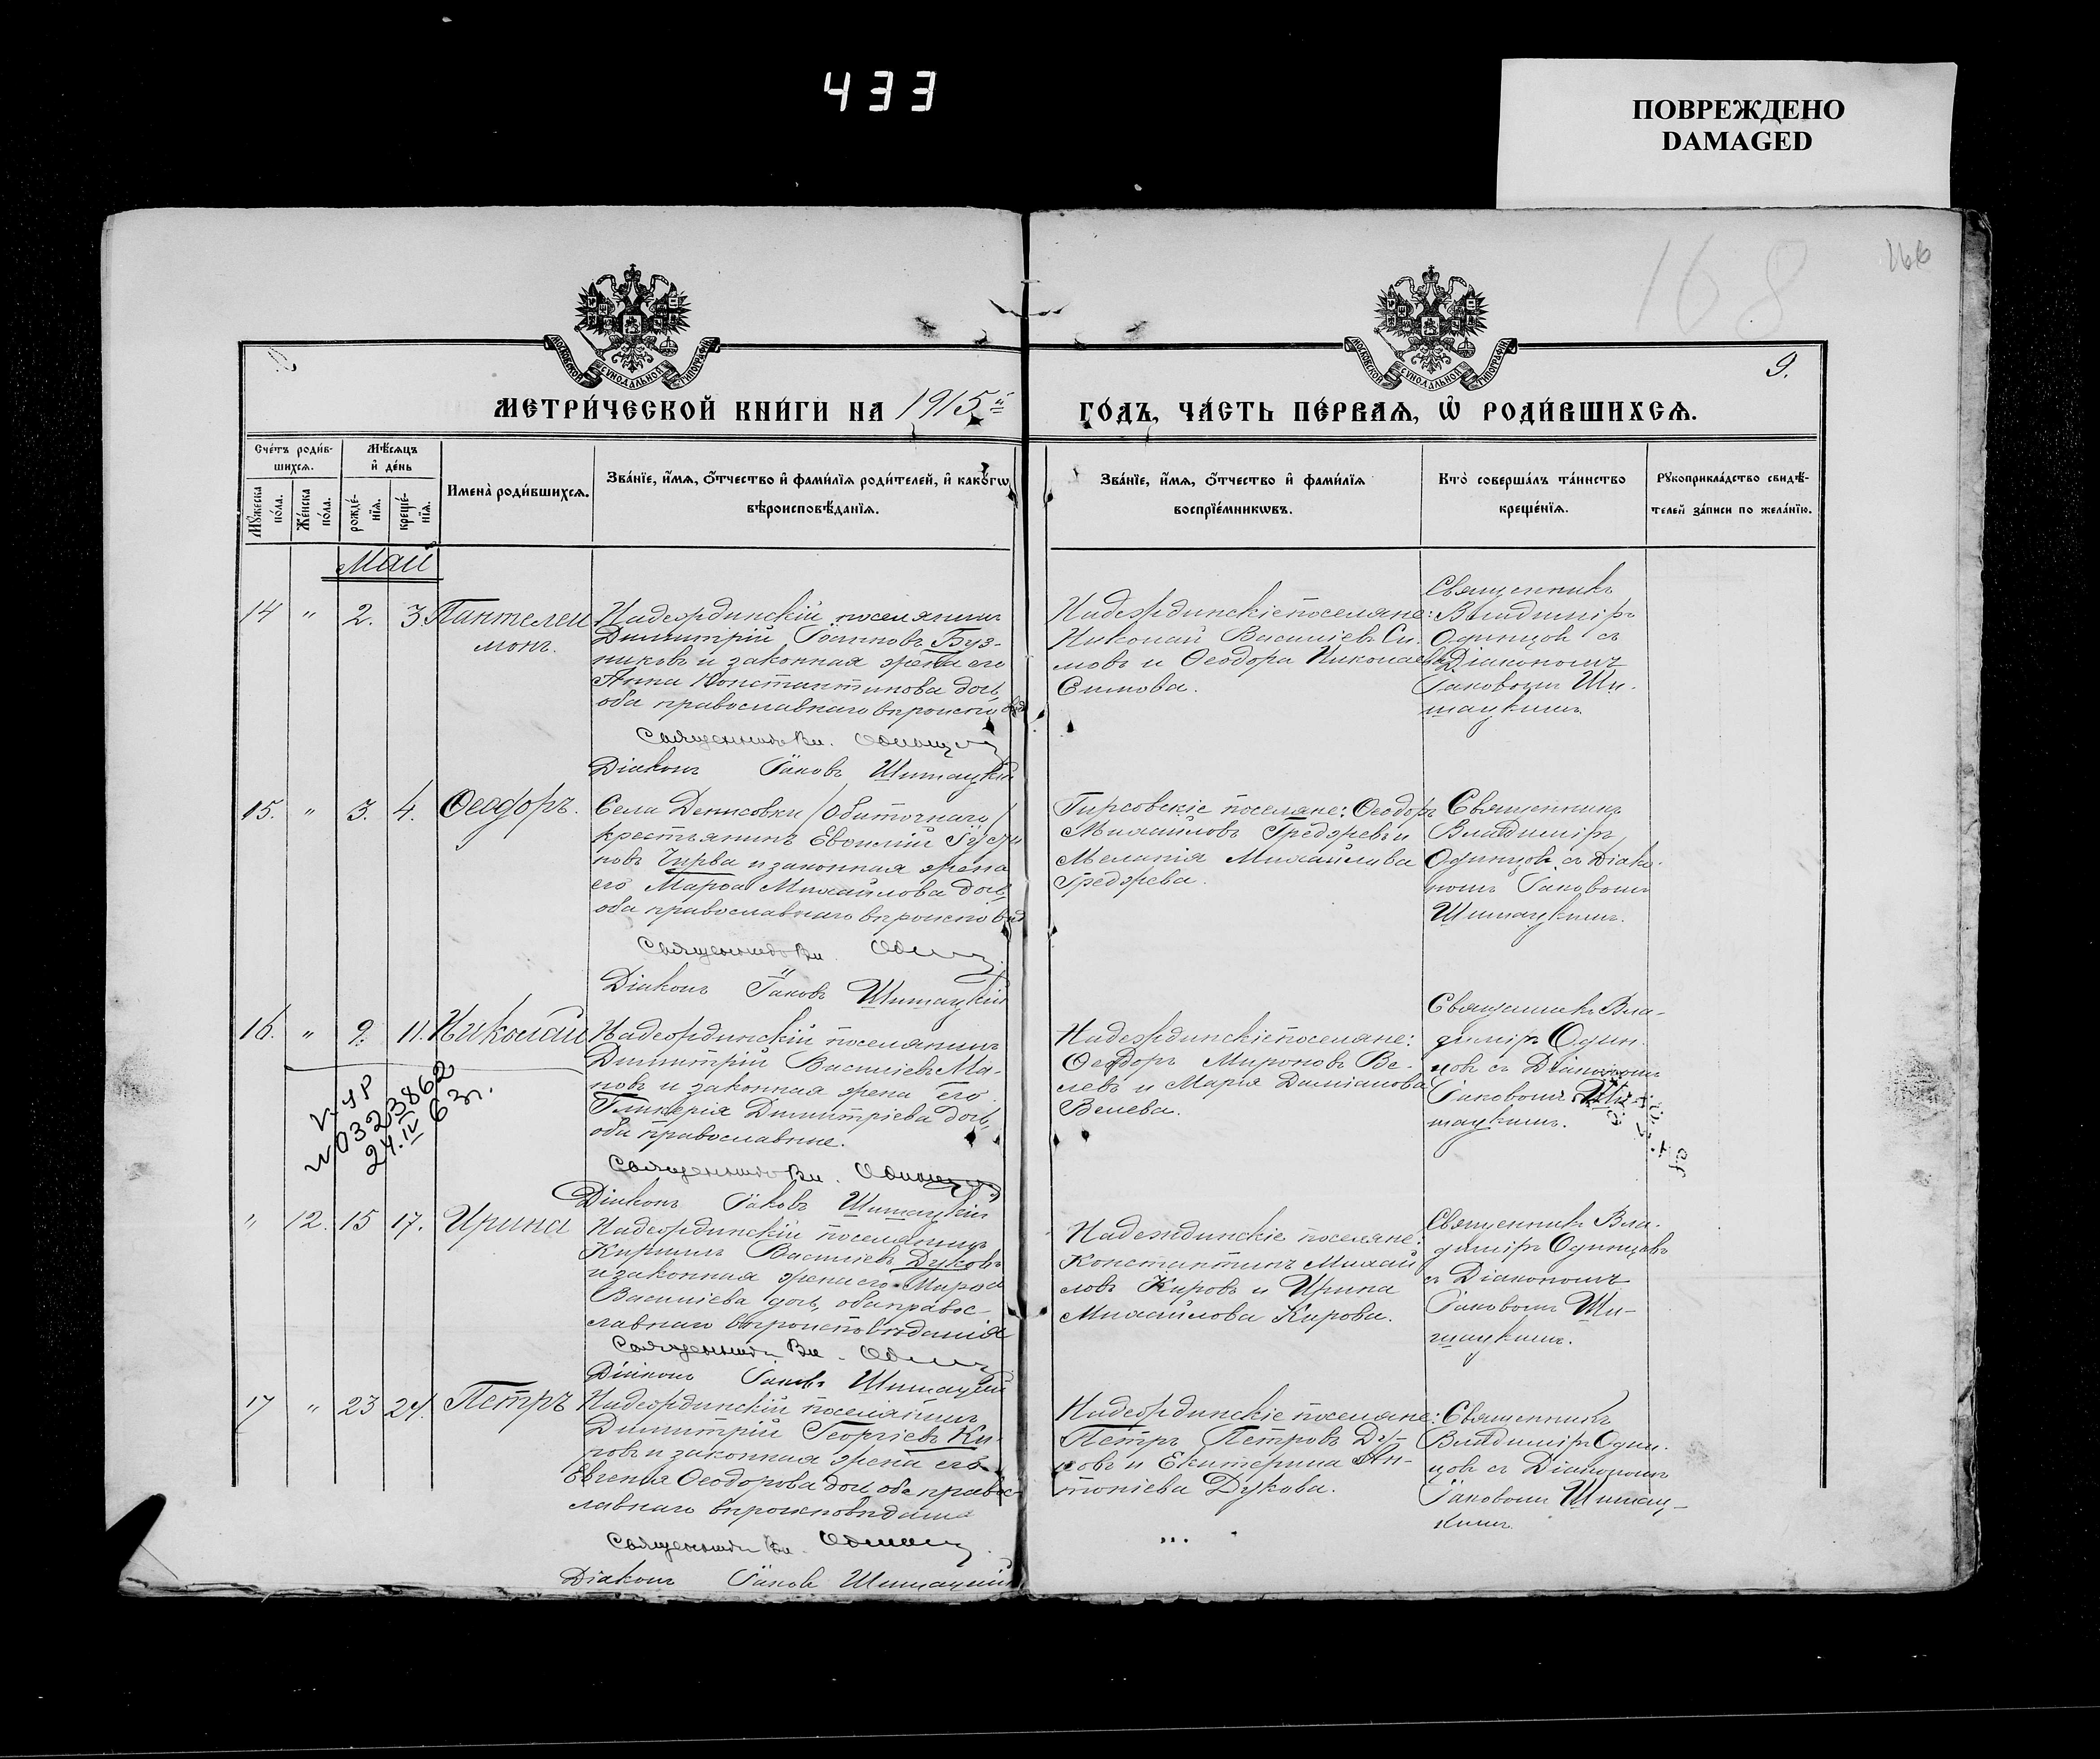 433
ПОВРЕЖДЕНО
DAMAGED
168
166
МОСКОВСКОЙ СѴНОДАЛЬНОЙ ТИПОГРАФІИ
МОСКОВСКОЙ СѴНОДАЛЬНОЙ ТИПОГРАФІИ
9.
МЕТРИ́ЧЕСКОЙ КНИ́ГИ НА 1915й
ГО́ДЪ, ЧА́СТЬ ПЕ́РВАѦ, Ѡ҆ РОДИ́ВШИХСѦ.
Сче́тъ роди́в-
шихсѧ.
Мѣ́сѧцъ
и҆ де́нь
Мꙋ́жеска
по́ла.
Же́нска
по́ла.
рожде́-
нїѧ.
креще́-
нїѧ.
Имена̀ роди́вшихсѧ.
Зва́нїе, и҆́мѧ, ѻ҆́тчество и҆ фами́лїѧ роди́телей, и҆ како́гѡ
вѣроисповѣ́данїѧ.
Зва́нїе, и҆́мѧ, ѻ҆́тчество и҆ фами́лїѧ
воспрїе́мникѡвъ.
Кто̀ соверша́лъ та́инство
креще́нїѧ.
Рꙋкоприкла́дство свидѣ́-
телей за́писи по жела́нїю.
Май
14 " 2. 3. Пантелеи
монъ.
Надеждинскій поселянинъ
Димитрій Іоанновъ Буз-
никовъ и законная жена его
Анна Константинова дочь,
оба православнаго вѣроисповѣд
Священникъ Вл. Одинцовъ
Діаконъ Іаковъ Шишацкій
Надеждинскіе поселяне:
Николай Василіевъ Си-
мовъ и Ѳеодора Николаева
Симова.
Священникъ
Владиміръ
Одинцовъ съ
Діакономъ
Іаковомъ Ши-
шацкимъ.
15. " 3. 4. Ѳеодоръ.
Села Денисовки /Обиточнаго/
крестьянинъ Евѳимій Іусти
новъ Чирва и законная жена
его Марѳа Михайлова дочь,
оба православнаго вѣроисповѣд
Священникъ Вл.
Діаконъ Іаковъ Шишацкій
Гирсовскіе поселяне: Ѳеодоръ
Михайловъ Греджевъ и
Меланія Михайлова
Греджева.
Священникъ
Владиміръ
Одинцовъ съ Діако-
номъ Іаковомъ
Шишацкимъ.
16. " 9. 11. Николай
Надеждинскій поселянинъ
Димитрій Василіевъ Ма-
новъ и законная жена его
Гликерія Димитріева дочь,
оба православные.
Священникъ Вл. Одинцовъ
Діаконъ Іаковъ Шишацкій
Надеждинскіе поселяне:
Ѳеодоръ Мироновъ Ве-
левъ и Марія Даміанова
Велева.
Священникъ Вла-
диміръ Один-
цовъ съ Діакономъ
Іаковомъ Ши-
шацкимъ.
№0323862
24.IV 63г.
" 12. 15 17. Ирина
Надеждинскій поселянинъ
Кириллъ Василіевъ Дуковъ
и законная жена его Марѳа
Василіева дочь, оба правос-
лавнаго вѣроисповѣданія
Священникъ Вл.
Діаконъ Іаковъ Шишацкій
Надеждинскіе поселяне:
Константинъ Михай
ловъ Кировъ и Ирина
Михайлова Кирова.
Священникъ Вла-
диміръ Одинцовъ
съ Діакономъ
Іаковомъ Ши-
шацкимъ.
17 " 23 24. Петръ
Надеждинскій поселянинъ
Димитрій Георгіевъ Ки-
ровъ и законная жена его
Евгенія Ѳеодорова доч оба правос
лавнаго вѣроисповѣданія
Священникъ Вл.
Діаконъ Іаковъ Шишацкій
Надеждинскіе поселяне:
Петръ Петровъ Ду-
ковъ и Екатерина Ан-
тоніева Дукова.
Священникъ
Владиміръ Один-
цовъ съ Діакономъ
Іаковомъ Шишац-
кимъ.